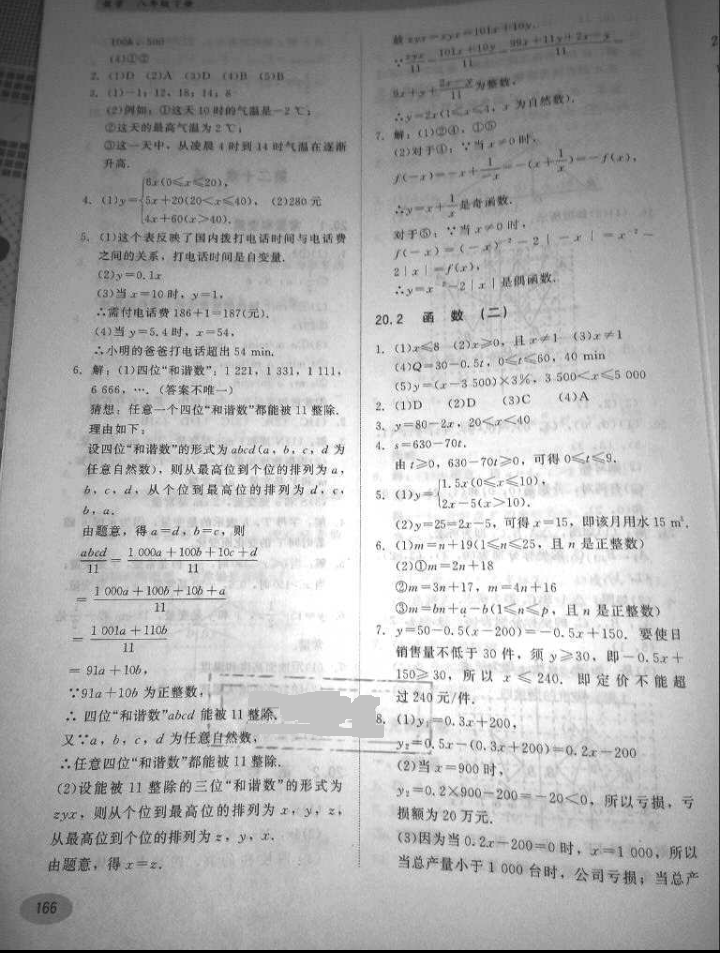 数学 八年级下册
100x-500
(4)①②
2. (1)D (2)A (3)D (4)B (5)B
3. (1)-1;12,18;14;8
(2)例如:①这天10时的气温是-2℃;
②这天的最高气温为2℃;
③这一天中,从凌晨4时到14时气温在逐渐
升高.
4. (1)y={6x(0≤x≤20),
5x+20(20<x≤40),
4x+60(x>40).
(2)280元
5. (1)这个表反映了国内拨打电话时间与电话费
之间的关系,打电话时间是自变量.
(2)y=0.1x
(3)当x=10时,y=1,
∴需付电话费186+1=187(元).
(4)当y=5.4时,x=54,
∴小明的爸爸打电话超出54 min.
6. 解:(1)四位“和谐数”:1 221,1 331,1 111,
6 666,….(答案不唯一)
猜想:任意一个四位“和谐数”都能被11整除.
理由如下:
设四位“和谐数”的形式为abcd(a,b,c,d为
任意自然数),则从最高位到个位的排列为a,
b,c,d,从个位到最高位的排列为d,c,
b,a.
由题意,得a=d,b=c,则
abcd/11=(1 000a+100b+10c+d)/11
=(1 000a+100b+10b+a)/11
=(1 001a+110b)/11
=91a+10b,
∵91a+10b为正整数,
∴四位“和谐数”abcd能被11整除,
又∵a,b,c,d为任意自然数,
∴任意四位“和谐数”都能被11整除.
(2)设能被11整除的三位“和谐数”的形式为
zyx,则从个位到最高位的排列为x,y,z,
从最高位到个位的排列为z,y,x.
由题意,得x=z.
166
故zyx=xyx=101x+10y.
∵zyx/11=(101x+10y)/11=(99x+11y+2x-y)/11
9x+y+(2x-y)/11为整数.
∴y=2x(1≤x≤4,x为自然数).
7. 解:(1)②④,①⑤
(2)对于④:∵当x≠0时,
f(-x)=-x+1/-x=-(x+1/x)=-f(x),
∴y=x+1/x是奇函数.
对于⑤:∵当x≠0时,
f(-x)=(-x)⁻²-2|-x|=x⁻²-
2|x|=f(x),
∴y=x⁻²-2|x|是偶函数.
20.2 函 数 (二)
1. (1)x≤8 (2)x≥0,且x≠1 (3)x≠1
(4)Q=30-0.5t,0≤t≤60,40 min
(5)y=(x-3 500)×3%,3 500<x≤5 000
2. (1)D (2)D (3)C (4)A
3. y=80-2x,20<x<40
4. s=630-70t.
由t≥0,630-70t≥0,可得0≤t≤9.
5. (1)y={1.5x(0≤x≤10),
2x-5(x>10).
(2)y=25=2x-5,可得x=15,即该月用水15 m³.
6. (1)m=n+19(1≤n≤25,且n是正整数)
(2)①m=2n+18
②m=3n+17,m=4n+16
③m=bn+a-b(1≤n≤p,且n是正整数)
7. y=50-0.5(x-200)=-0.5x+150. 要使日
销售量不低于30件,须y≥30,即-0.5x+
150≥30,所以x≤240. 即定价不能超
过240元/件.
8. (1)y₁=0.3x+200,
y₂=0.5x-(0.3x+200)=0.2x-200
(2)当x=900时,
y₂=0.2×900-200=-20<0,所以亏损,亏
损额为20万元.
(3)因为当0.2x-200=0时,x=1 000,所以
当总产量小于1 000台时,公司亏损;当总产